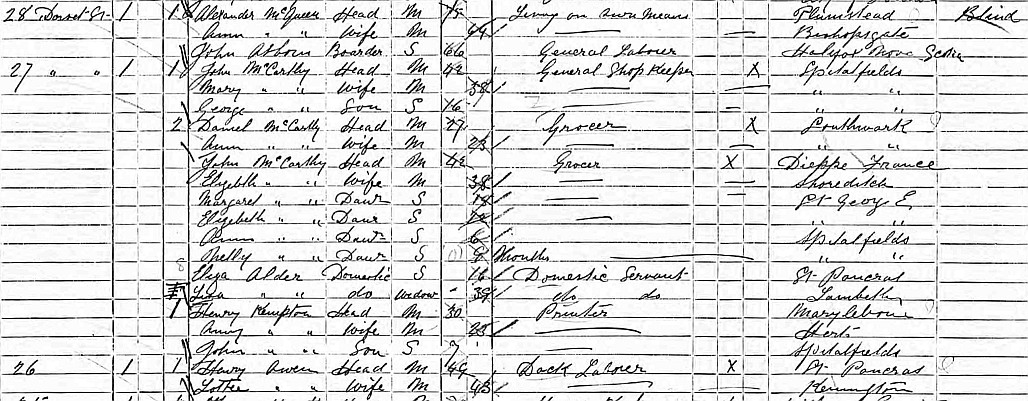 28 Dorset St 1 1 Alexander McQueen Head M 75 Living on own means Plumstead Blind
Ann " " Wife M 49 — Bishopsgate
John Boarder S 66 General Laborer Halifax Nova Scotia
27 " " 1 1 John McCarthy Head M 42 General Shop Keeper X Spitalfields
Mary " " Wife M 38 — " "
George " " Son S 16 — " "
2 Daniel McCarthy Head M 27 Grocer X Southwark
Ann " " Wife M 23 — " "
John McCarthy Head M 42 Grocer X Dieppe France
Elizabeth " " Wife M 38 — Shoreditch
Margaret " " Daur S 18 — St Geoy E.
Elizabeth " " Daur S — " "
Ann " " Daur S 6 Spitalfields
Nelly " " Daur S 9 Months " "
Eliza Alder Domestic S 16 Domestic Servant St Pancras
" " do Widow 39 do do Lambeth
1 Henry Kempton Head M 30 Printer Marylebone
Anny " " Wife M 23 — Herts
John " " Son S 7 Spitalfields
26 1 1 Henry Owen Head M 49 Dock Laborer X St Pancras
Lottie " " Wife M 43 — Kennington